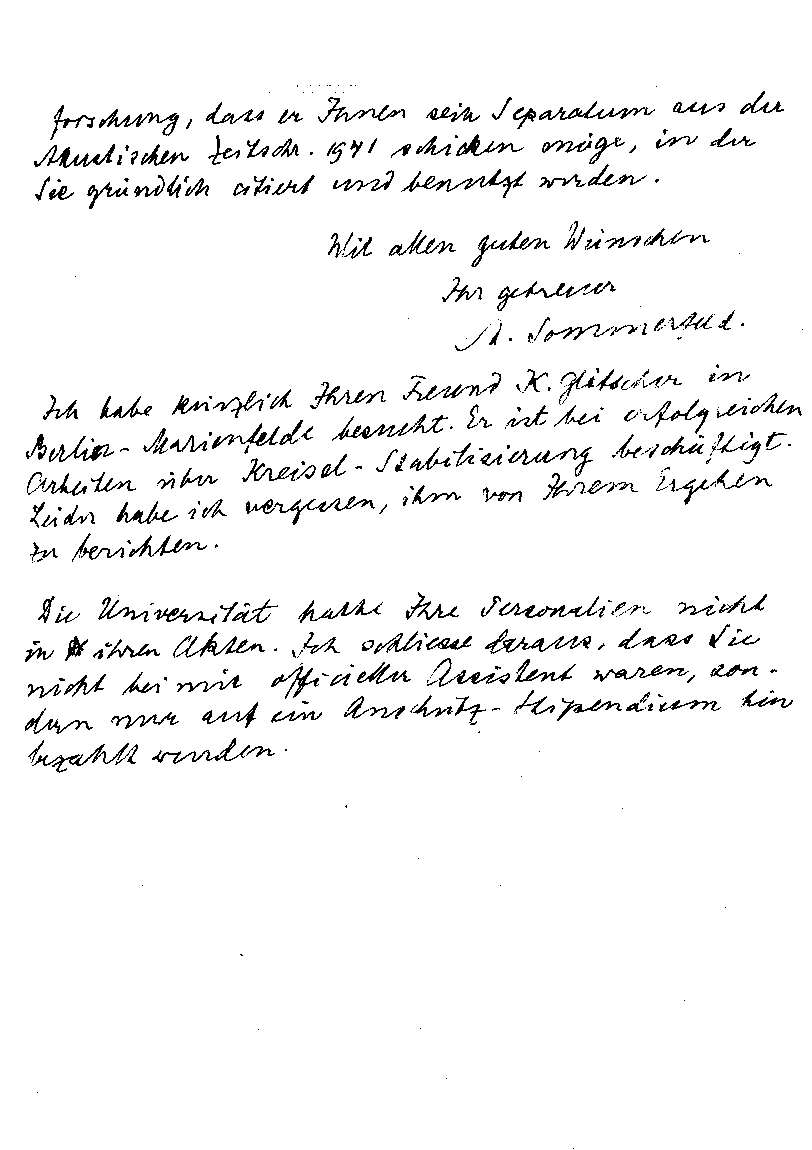 forschung, dass er Ihnen sein Separatum aus der
Akustischen Zeitschr. 1941 schicken möge, in der
Sie gründlich citiert und benutzt werden.
Mit allen guten Wünschen
Ihr getreuer
A. Sommerfeld.
Ich habe kürzlich Ihren Freund K. Glitscher in
Berlin-Marienfelde besucht. Er ist bei erfolgreichen
Arbeiten über Kreisel-Stabilisierung beschäftigt.
Leider habe ich vergessen, ihm von Ihrem Ergehen
zu berichten.
Die Universität hatte Ihre Personalien nicht
in ihren Akten. Ich schliesse daraus, dass Sie
nicht bei mir officieller Assistent waren, son-
dern nur auf ein Anschütz-Stipendium hin
bezahlt wurden.